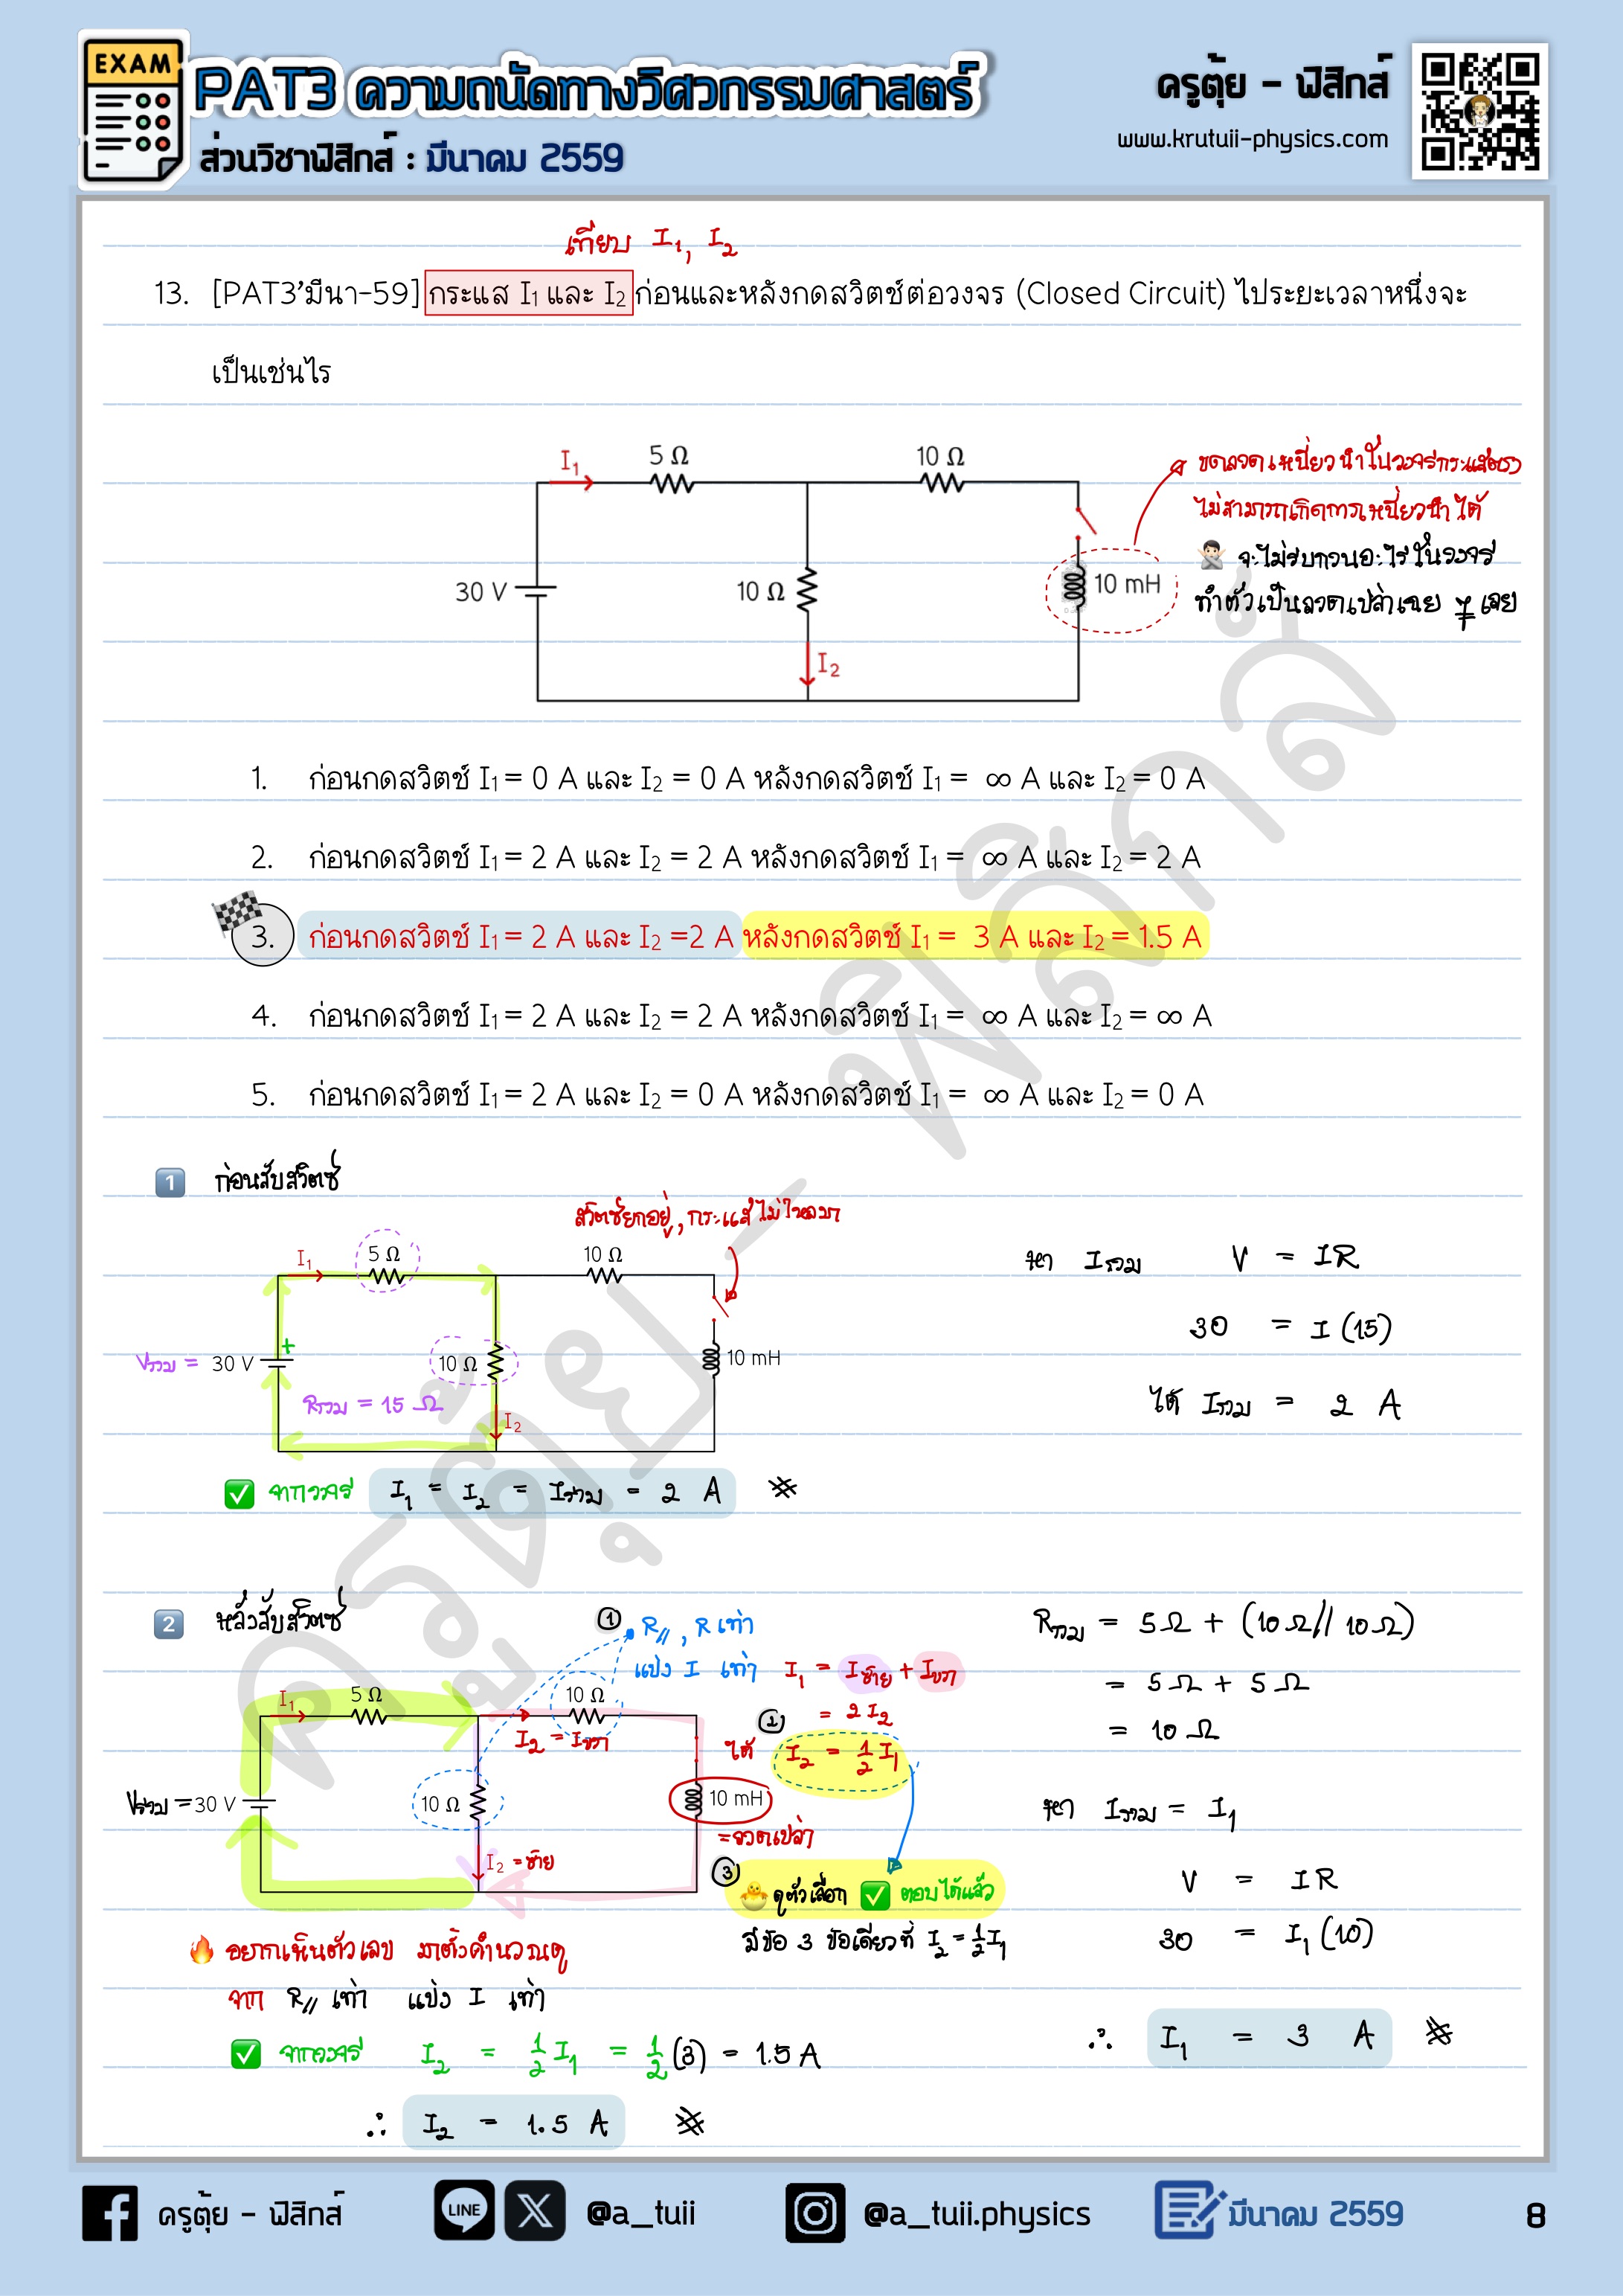 EXAM
PAT3 ความถนัดทางวิศวกรรมศาสตร์
ส่วนวิชาฟิสิกส์ : มีนาคม 2559
ครูตุ้ย - ฟิสิกส์
www.krutuii-physics.com
เทียบ I₁, I₂
13. [PAT3’มีนา-59] กระแส I₁ และ I₂ ก่อนและหลังกดสวิตช์ต่อวงจร (Closed Circuit) ไประยะเวลาหนึ่งจะ
เป็นเช่นไร
I₁
5 Ω
10 Ω
30 V
10 Ω
10 mH
I₂
ขดลวดเหนี่ยวนำในวงจรกระแสตรง
ไม่สามารถเกิดการเหนี่ยวนำได้
จะไม่รบกวนอะไรในวงจร
ทำตัวเป็นลวดเปล่าเฉย ๆ เลย
1. ก่อนกดสวิตช์ I₁ = 0 A และ I₂ = 0 A หลังกดสวิตช์ I₁ = ∞ A และ I₂ = 0 A
2. ก่อนกดสวิตช์ I₁ = 2 A และ I₂ = 2 A หลังกดสวิตช์ I₁ = ∞ A และ I₂ = 2 A
3. ก่อนกดสวิตช์ I₁ = 2 A และ I₂ =2 A หลังกดสวิตช์ I₁ = 3 A และ I₂ = 1.5 A
4. ก่อนกดสวิตช์ I₁ = 2 A และ I₂ = 2 A หลังกดสวิตช์ I₁ = ∞ A และ I₂ = ∞ A
5. ก่อนกดสวิตช์ I₁ = 2 A และ I₂ = 0 A หลังกดสวิตช์ I₁ = ∞ A และ I₂ = 0 A
ครูตุ้ย - ฟิสิกส์
1 ก่อนสับสวิตซ์
สวิตซ์ยกอยู่, กระแสไม่ไหลมา
I₁
5 Ω
10 Ω
+
Vรวม = 30 V
10 Ω
10 mH
Rรวม = 15 Ω
I₂
หา Iรวม V = IR
30 = I (15)
ได้ Iรวม = 2 A
✅ จากวงจร I₁ = I₂ = Iรวม = 2 A
2 หลังสับสวิตซ์
① R//, R เท่า
แบ่ง I เท่า
I₁ = Iซ้าย + Iขวา
= 2I₂
② ได้ I₂ = ½ I₁
I₁
5 Ω
10 Ω
I₂ = Iขวา
Vรวม = 30 V
10 Ω
10 mH
=ลวดเปล่า
I₂ = ซ้าย
③ ดูตัวเลือก ✅ ตอบได้แล้ว
มีข้อ 3 ข้อเดียวที่ I₂ = ½I₁
Rรวม = 5 Ω + (10 Ω // 10 Ω)
= 5 Ω + 5 Ω
= 10 Ω
หา Iรวม = I₁
V = IR
30 = I₁ (10)
∴ I₁ = 3 A
🔥 อยากเห็นตัวเลข มาตั้งคำนวณดู
จาก R// เท่า แบ่ง I เท่า
✅ จากวงจร I₂ = ½ I₁ = ½ (3) = 1.5 A
∴ I₂ = 1.5 A
ครูตุ้ย - ฟิสิกส์
LINE
@a_tuii
@a_tuii.physics
มีนาคม 2559
8